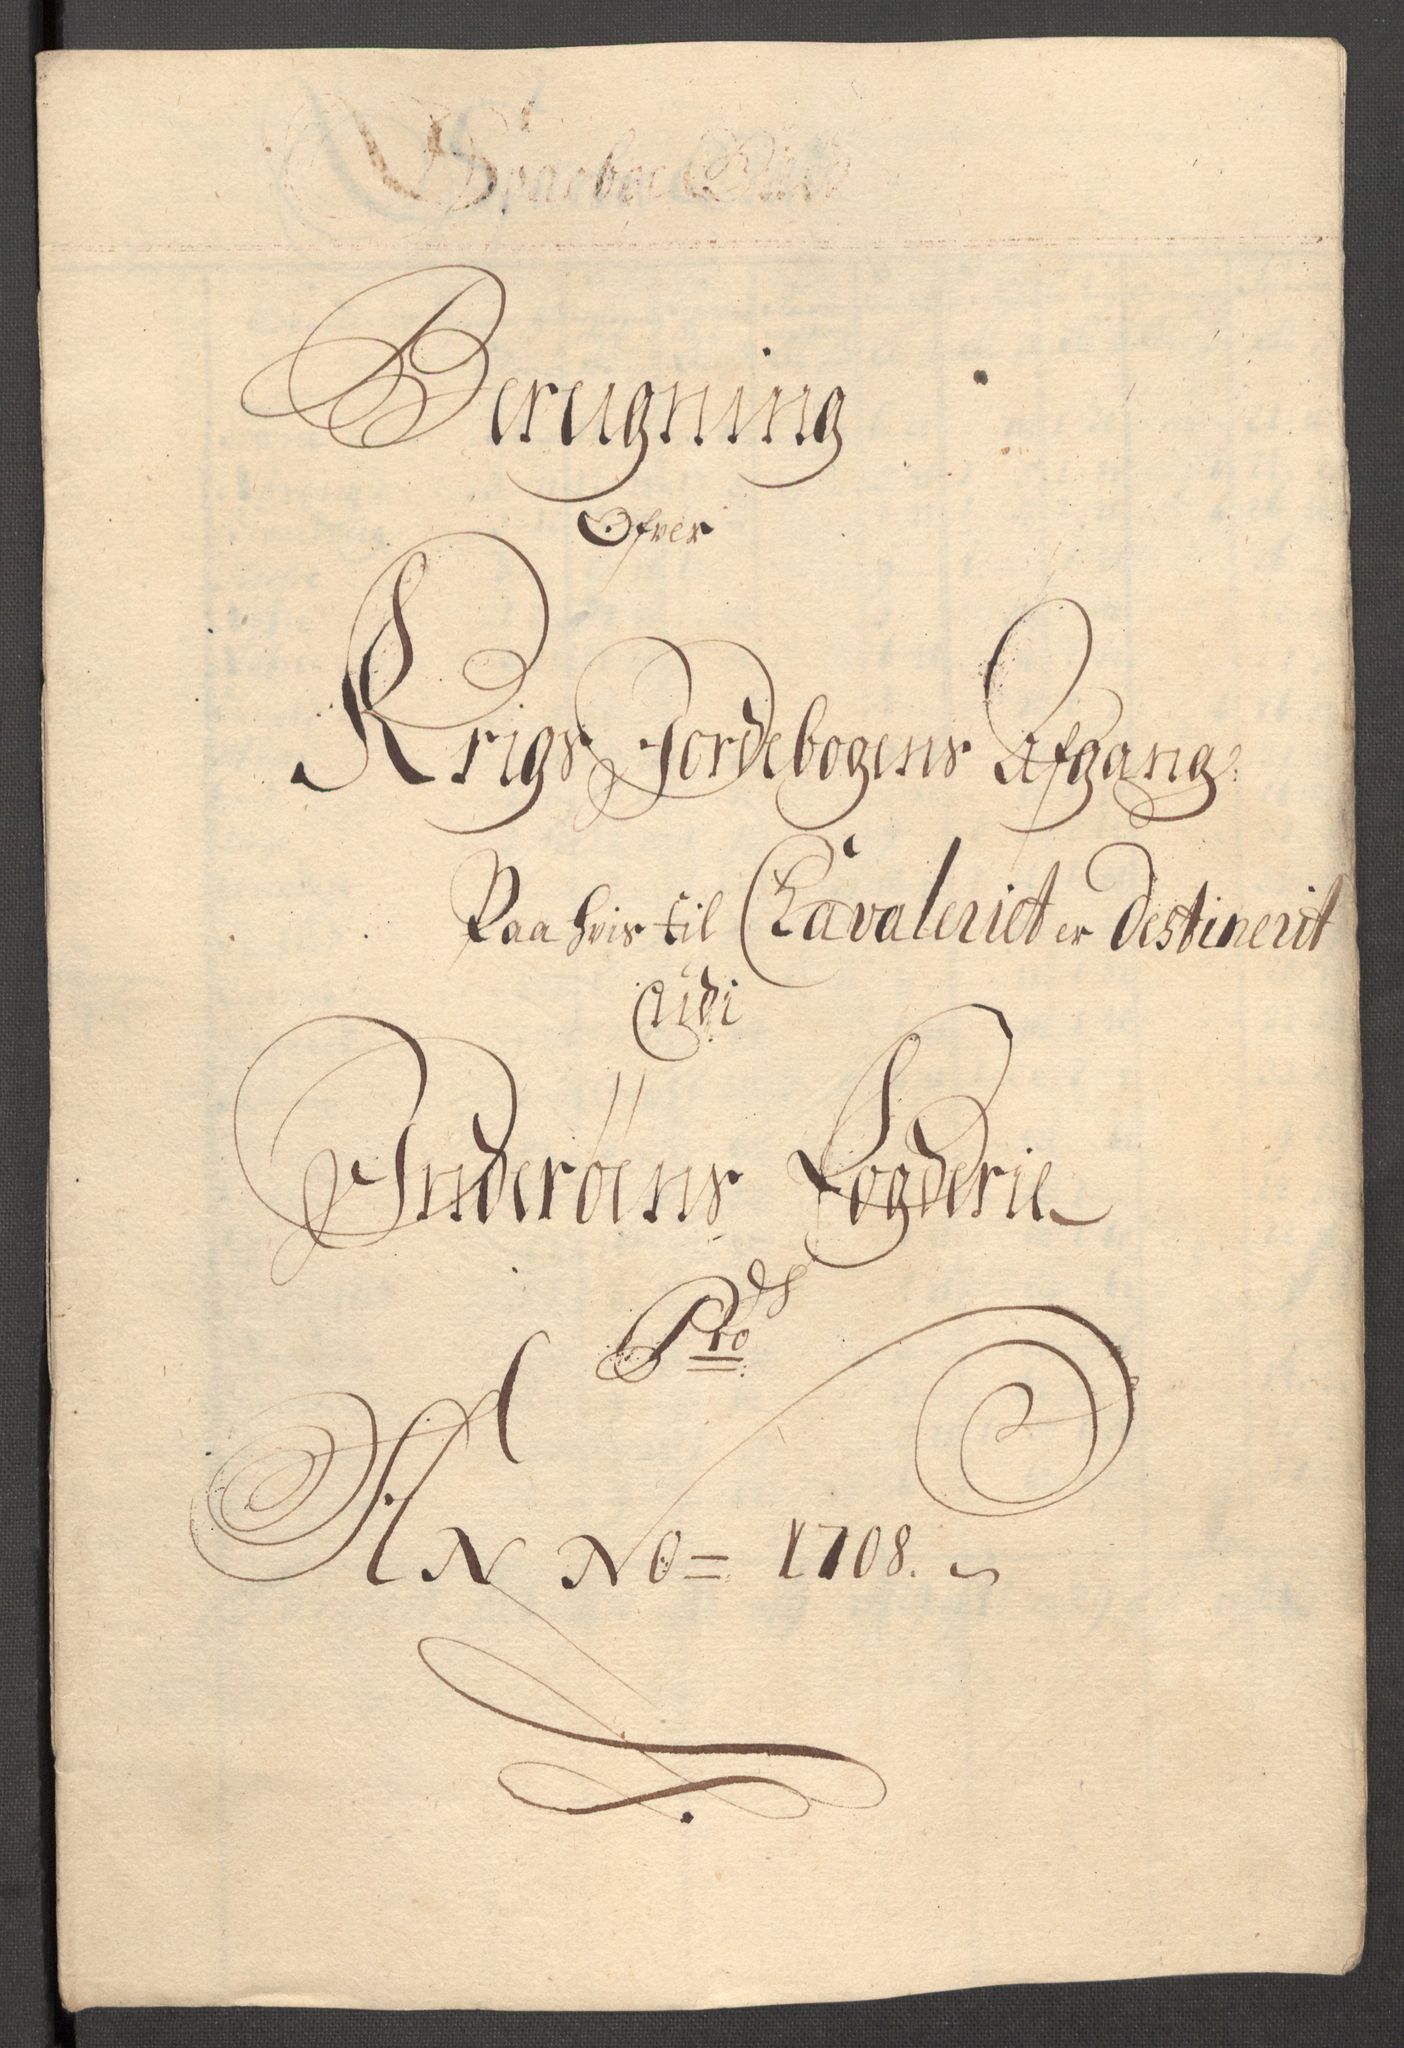 Bereigning
Ofver
Krigs Jordebogens Afgang
Paa hvis til Cavaleriet er destinerit
udi
Inderöens Fogderie
Pro
ANNO = 1708.